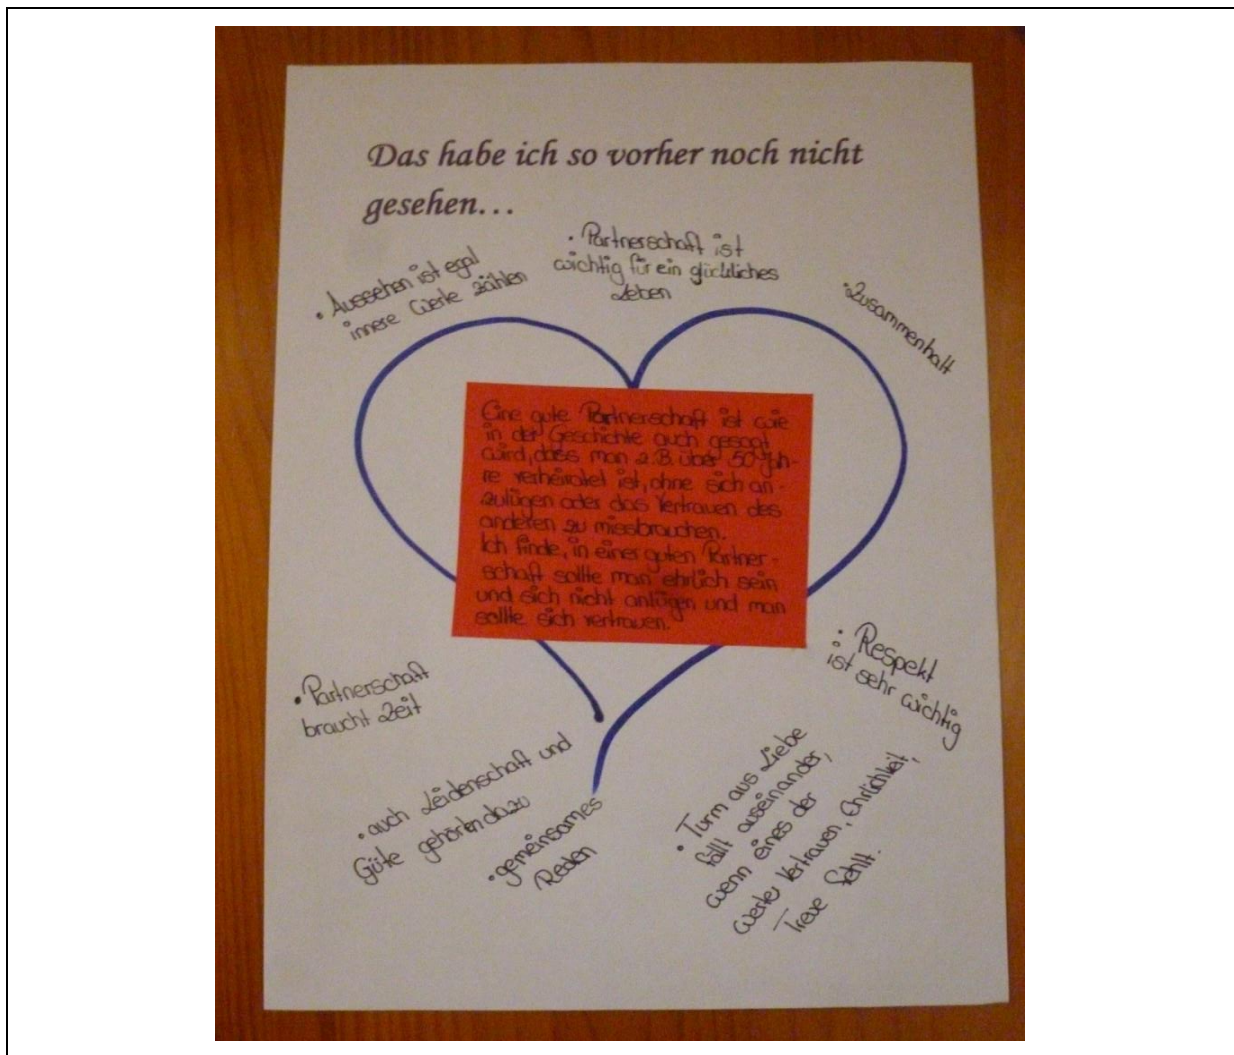 Das habe ich so vorher noch nicht
gesehen...
• Aussehen ist egal
innere Werte zählen
• Partnerschaft ist
wichtig für ein glückliches
Leben
• Zusammenhalt
Eine gute Partnerschaft ist wie
in der Geschichte auch gesagt
wird, dass man z.B. über 50 Jah-
re verheiratet ist, ohne sich an-
zulügen oder das Vertrauen des
anderen zu missbrauchen.
Ich finde, in einer guten Partner-
schaft sollte man ehrlich sein
und sich nicht anlügen und man
sollte sich vertrauen.
• Partnerschaft
braucht Zeit
• auch Leidenschaft und
Güte gehören dazu
• gemeinsames
Reden
• Turm aus Liebe
fällt auseinander,
wenn eines der
Werte Vertrauen, Ehrlichkeit,
Treue fehlt.
• Respekt
ist sehr wichtig